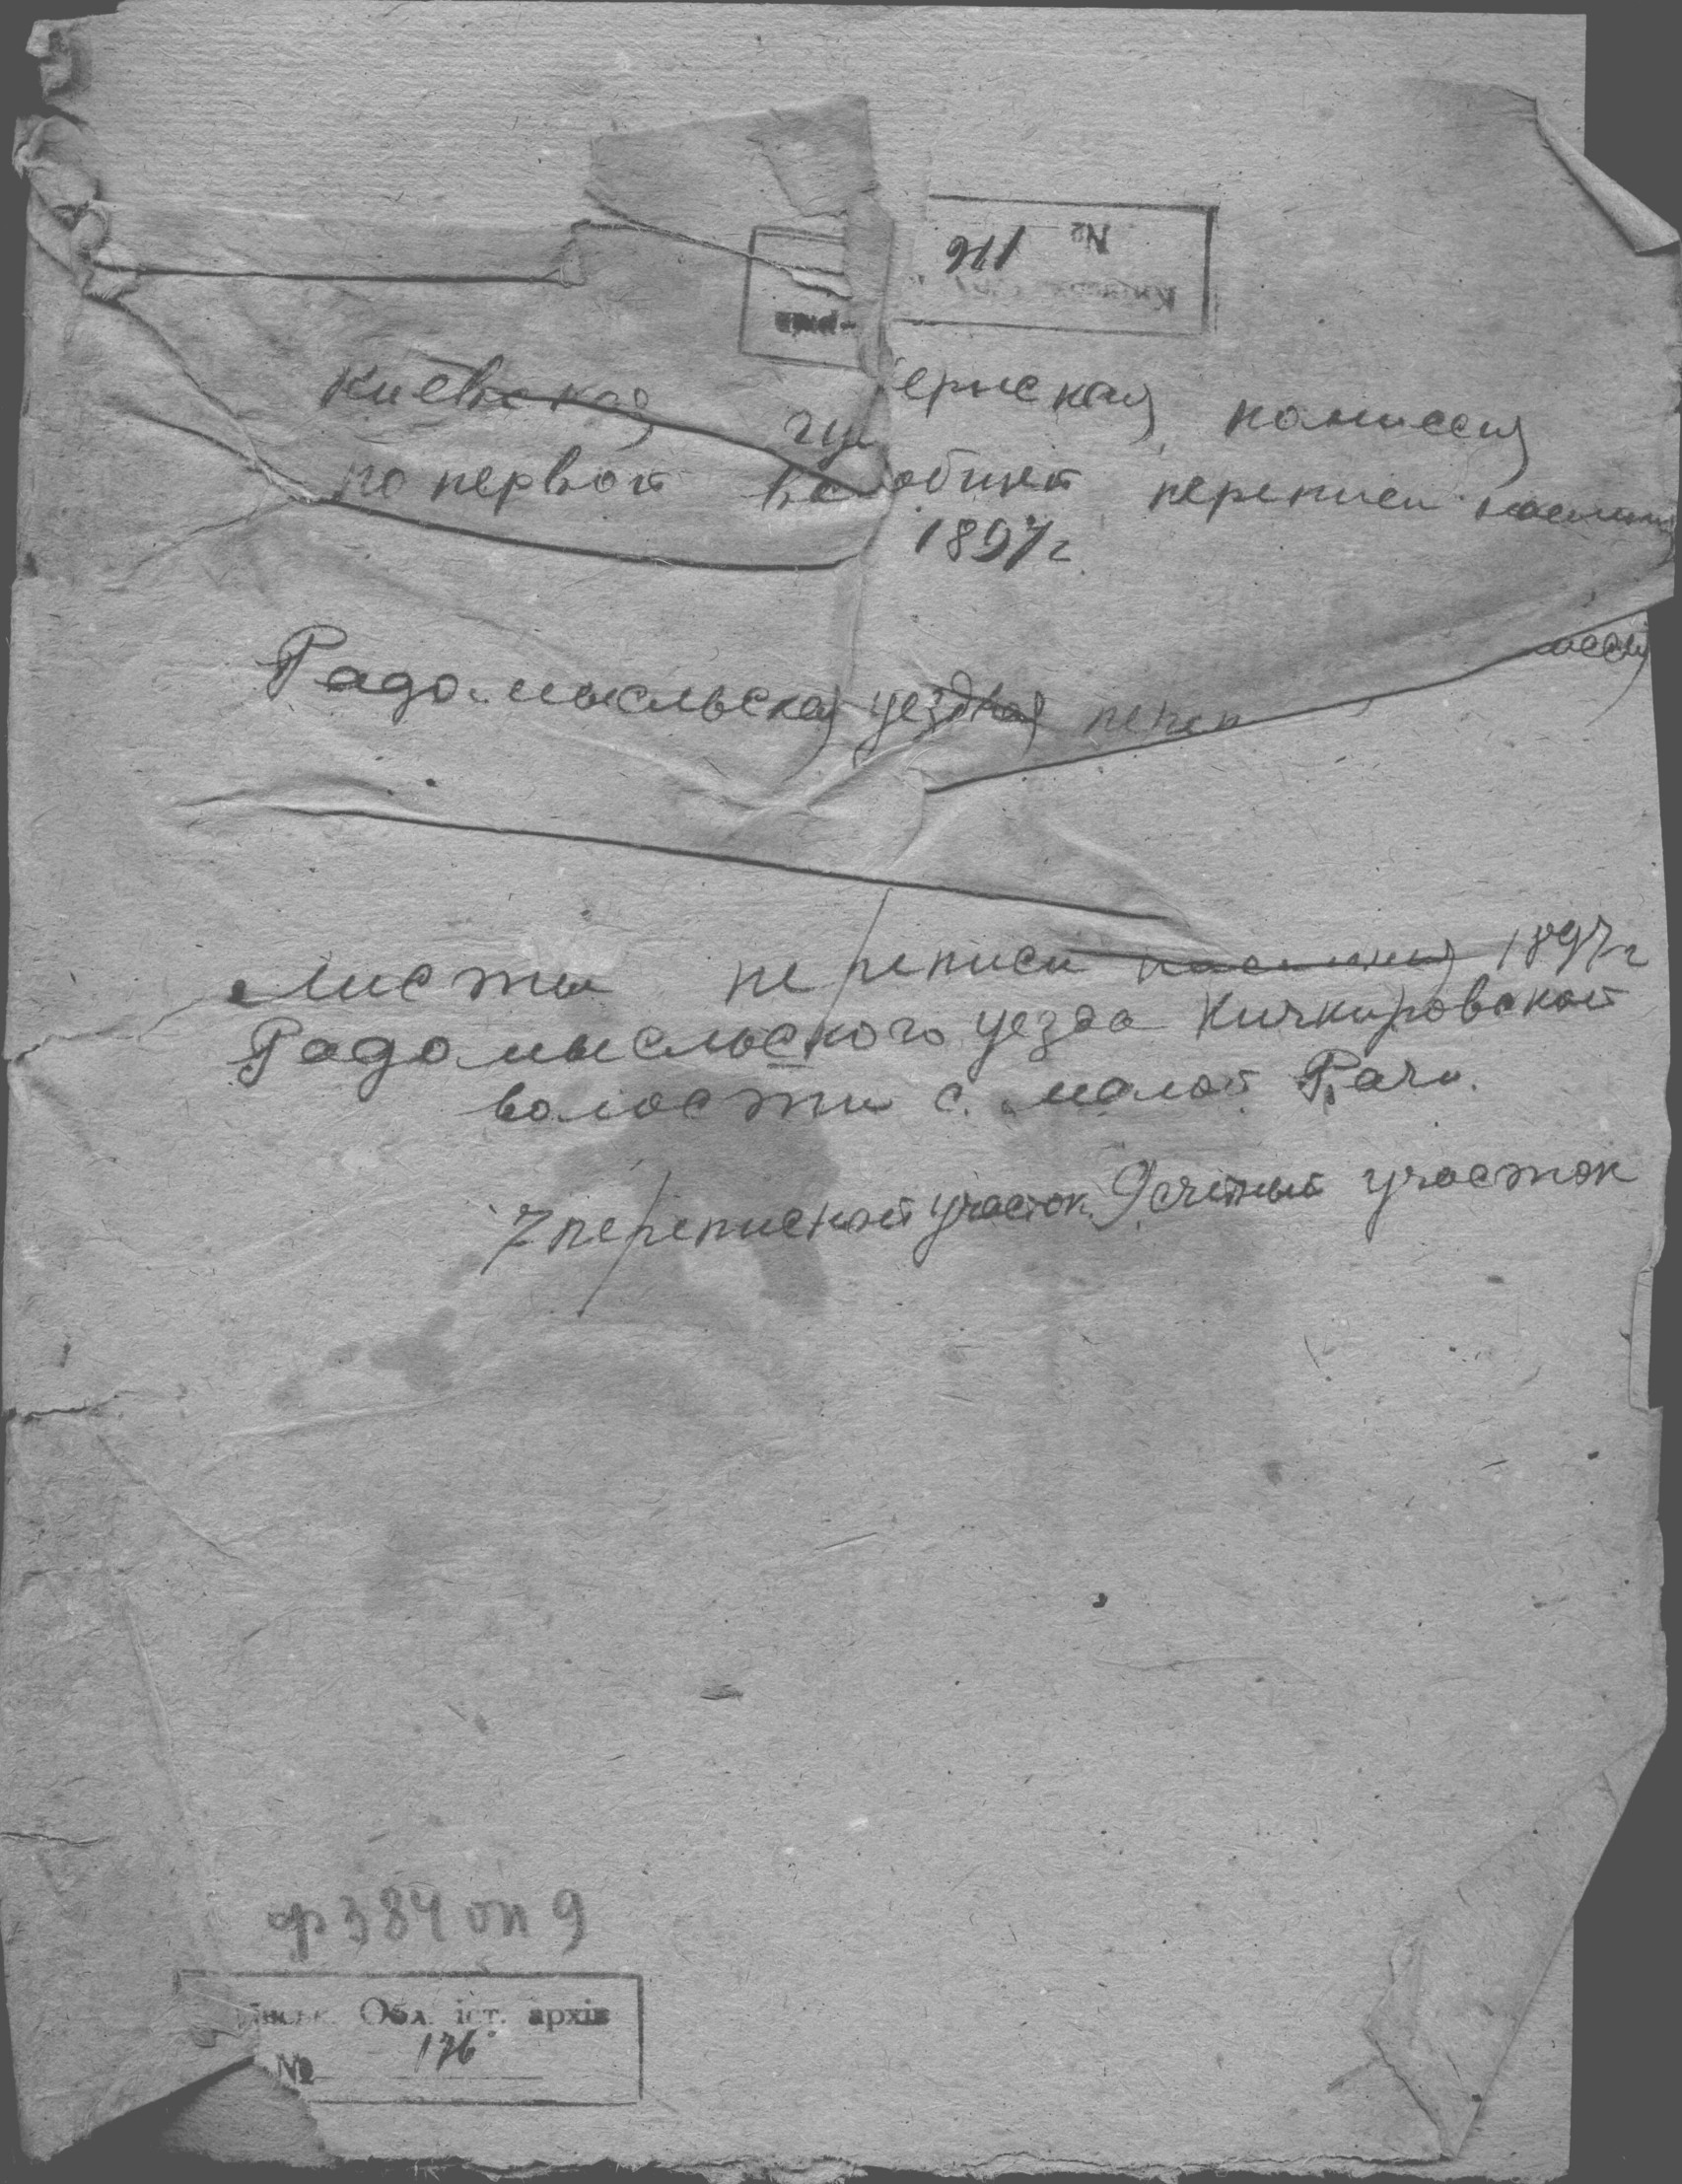 № 176
Киевская гу ернская комиссия
по первой Все общей переписи населения
1897 г
Радомысльская уездная переп иссия
Листы переписи населения 1897 г
Радомысльского уезда Кичкировской
волости с. малой Рачи.
7 переписной участок. 9 счетный участок
ф 384 оп 9
ївськ. Обл. іст. архів
№ 176